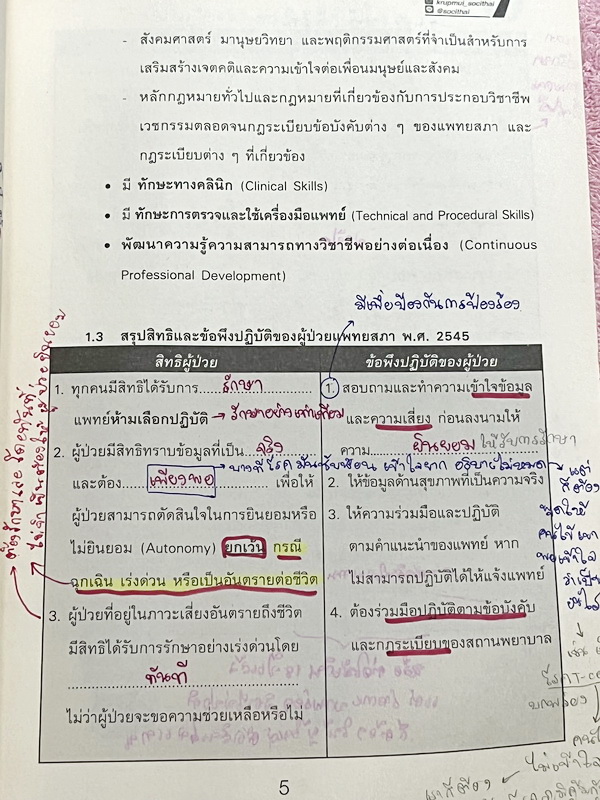 krupmui_socithai
@socithai
- สังคมศาสตร์ มานุษยวิทยา และพฤติกรรมศาสตร์ที่จำเป็นสำหรับการ
เสริมสร้างเจตคติและความเข้าใจต่อเพื่อนมนุษย์และสังคม
- หลักกฎหมายทั่วไปและกฎหมายที่เกี่ยวข้องกับการประกอบวิชาชีพ
เวชกรรมตลอดจนกฎระเบียบข้อบังคับต่าง ๆ ของแพทยสภา และ
กฎระเบียบต่าง ๆ ที่เกี่ยวข้อง
• มี ทักษะทางคลินิก (Clinical Skills)
• มี ทักษะการตรวจและใช้เครื่องมือแพทย์ (Technical and Procedural Skills)
• พัฒนาความรู้ความสามารถทางวิชาชีพอย่างต่อเนื่อง (Continuous
Professional Development)
มีเพื่อป้องกันการฟ้องร้อง
1.3 สรุปสิทธิและข้อพึงปฏิบัติของผู้ป่วยแพทยสภา พ.ศ. 2545
สิทธิผู้ป่วย
1. ทุกคนมีสิทธิได้รับการ....รักษา....
แพทย์ห้ามเลือกปฏิบัติ → รักษาอย่างเท่าเทียม
2. ผู้ป่วยมีสิทธิทราบข้อมูลที่เป็น....จริง....
บางทีโรคมันซับซ้อน เข้าใจยาก อธิบายไม่หมด
และต้อง....เพียงพอ....เพื่อให้
ผู้ป่วยสามารถตัดสินใจในการยินยอมหรือ
ไม่ยินยอม (Autonomy) ยกเว้น กรณี
ฉุกเฉิน เร่งด่วน หรือเป็นอันตรายต่อชีวิต
3. ผู้ป่วยที่อยู่ในภาวะเสี่ยงอันตรายถึงชีวิต
มีสิทธิได้รับการรักษาอย่างเร่งด่วนโดย
....ทันที....
ไม่ว่าผู้ป่วยจะขอความช่วยเหลือหรือไม่
ข้อพึงปฏิบัติของผู้ป่วย
1. สอบถามและทำความเข้าใจข้อมูล
และความเสี่ยง ก่อนลงนามให้
ความ....ยินยอม....ให้รับการรักษา
2. ให้ข้อมูลด้านสุขภาพที่เป็นความจริง
3. ให้ความร่วมมือและปฏิบัติ
ตามคำแนะนำของแพทย์ หาก
ไม่สามารถปฏิบัติได้ให้แจ้งแพทย์
4. ต้องร่วมมือปฏิบัติตามข้อบังคับ
และกฎระเบียบของสถานพยาบาล
แต่
ก็ต้อง
คนไข้
พอเข้าใจ
5